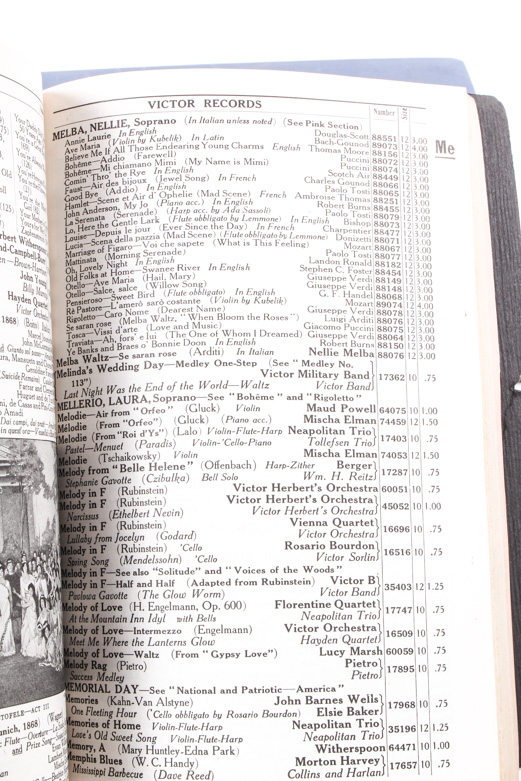 VICTOR RECORDS
Number Size
MELBA, NELLIE, Soprano (In Italian unless noted) (See Pink Section)
Annie Laurie In English Douglas-Scott 88551 12 3.00
Ave Maria (Violin by Kubelik) In Latin Bach-Gounod 89073 12 4.00
Believe Me if All Those Endearing Young Charms English Thomas Moore 88156 12 3.00
Bohême—Addio (Farewell) Puccini 88072 12 3.00
Bohême—Mi chiamano Mimi (My Name is Mimi) Puccini 88074 12 3.00
Comin' Thro the Rye In English Scotch Air 88449 12 3.00
Faust—Air des bijoux (Jewel Song) In French Charles Gounod 88066 12 3.00
Good Bye (Addio) In English Paolo Tosti 88065 12 3.00
Hamlet—Scene et Air d'Ophelie (Mad Scene) French Ambroise Thomas 88251 12 3.00
John Anderson, My Jo (Piano acc.) In English Robert Burns 88455 12 3.00
La Serenata (Serenade) (Harp acc. by Ada Sassoli) Paolo Tosti 88079 12 3.00
Lo, Here the Gentle Lark (Flute obbligato by Lemmone) In English Bishop 88073 12 3.00
Louise—Depuis le jour (Ever Since the Day) In French Charpentier 88477 12 3.00
Lucia—Scena della pazzia (Mad Scene) (Flute obbligato by Lemmone) Donizetti 88071 12 3.00
Marriage of Figaro—Voi che sapete (What is this Feeling) Mozart 88067 12 3.00
Mattinata (Morning Serenade) Paolo Tosti 88077 12 3.00
Oh, Lovely Night In English Landon Ronald 88182 12 3.00
Old Folks at Home—Swanee River In English Stephen C. Foster 88454 12 3.00
Otello—Ave Maria (Hail, Mary) Giuseppe Verdi 88149 12 3.00
Otello—Salce, salce (Willow Song) Giuseppe Verdi 88148 12 3.00
Pensieroso—Sweet Bird (Flute obbligato) In English G. F. Handel 88068 12 3.00
Rè Pastore—L'amerò sarò costante (Violin by Kubelik) Mozart 89074 12 4.00
Rigoletto—Caro Nome (Dearest Name) Giuseppe Verdi 88078 12 3.00
Se saran rose (Melba Waltz, "When Bloom the Roses") Luigi Arditi 88076 12 3.00
Tosca—Vissi d'arte (Love and Music) Giacomo Puccini 88075 12 3.00
Traviata—Ah, fors' e lui (The One of Whom I Dreamed) Giuseppe Verdi 88064 12 3.00
Ye Banks and Braes o' Bonnie Doon In English Robert Burns 88150 12 3.00
Melba Waltz—Se saran rose (Arditi) In Italian Nellie Melba 88076 12 3.00
Melinda's Wedding Day—Medley One-Step (See "Medley No.
113") Victor Military Band} 17362 10 .75
Last Night Was the End of the World—Waltz Victor Band}
MELLERIO, LAURA, Soprano—See "Bohême" and "Rigoletto"
Melodie—Air from "Orfeo" (Gluck) Violin Maud Powell 64075 10 1.00
Mélodie (From "Orfeo") (Gluck) (Piano acc.) Mischa Elman 74459 12 1.50
Melodie (From "Roi d'Ys") (Lalo) Violin-Flute-Harp Neapolitan Trio} 17403 10 .75
Pastel—Menuet (Paradis) Violin-'Cello-Piano Tollefsen Trio}
Melodie (Tschaikowsky) Violin Mischa Elman 74053 12 1.50
Melody from "Belle Helene" (Offenbach) Harp-Zither Berger} 17287 10 .75
Stephanie Gavotte (Czibulka) Bell Solo Wm. H. Reitz}
Melody in F (Rubinstein) Victor Herbert's Orchestra 60051 10 .75
Melody in F (Rubinstein) Victor Herbert's Orchestra} 45052 10 1.00
Narcissus (Ethelbert Nevin) Victor Herbert's Orchestra}
Melody in F (Rubinstein) Vienna Quartet} 16696 10 .75
Lullaby from Jocelyn (Godard) Victor Orchestra}
Melody in F (Rubinstein) 'Cello Rosario Bourdon} 16516 10 .75
Spring Song (Mendelssohn) 'Cello Victor Sorlin}
Melody in F—See also "Solitude" and "Voices of the Woods"
Melody in F—Half and Half (Adapted from Rubinstein) Victor B} 35403 12 1.25
Pavlowa Gavotte (The Glow Worm) Victor Band}
Melody of Love (H. Engelmann, Op. 600) Florentine Quartet} 17747 10 .75
At the Mountain Inn Idyl with Bells Neapolitan Trio}
Melody of Love—Intermezzo (Engelmann) Victor Orchestra} 16509 10 .75
Meet Me Where the Lanterns Glow Hayden Quartet}
Melody of Love—Waltz (From "Gypsy Love") Lucy Marsh 60059 10 .75
Melody Rag (Pietro) Pietro} 17895 10 .75
Success Medley Pietro}
MEMORIAL DAY—See "National and Patriotic—America"
Memories (Kahn-Van Alstyne) John Barnes Wells} 17968 10 .75
One Fleeting Hour ('Cello obbligato by Rosario Bourdon) Elsie Baker}
Memories of Home Violin-Flute-Harp Neapolitan Trio} 35196 12 1.25
Love's Old Sweet Song Violin-Flute-Harp Neapolitan Trio}
Memory, A (Mary Huntley-Edna Park) Witherspoon 64471 10 1.00
Memphis Blues (W. C. Handy) Morton Harvey} 17657 10 .75
Mississippi Barbecue (Dave Reed) Collins and Harlan}
Me